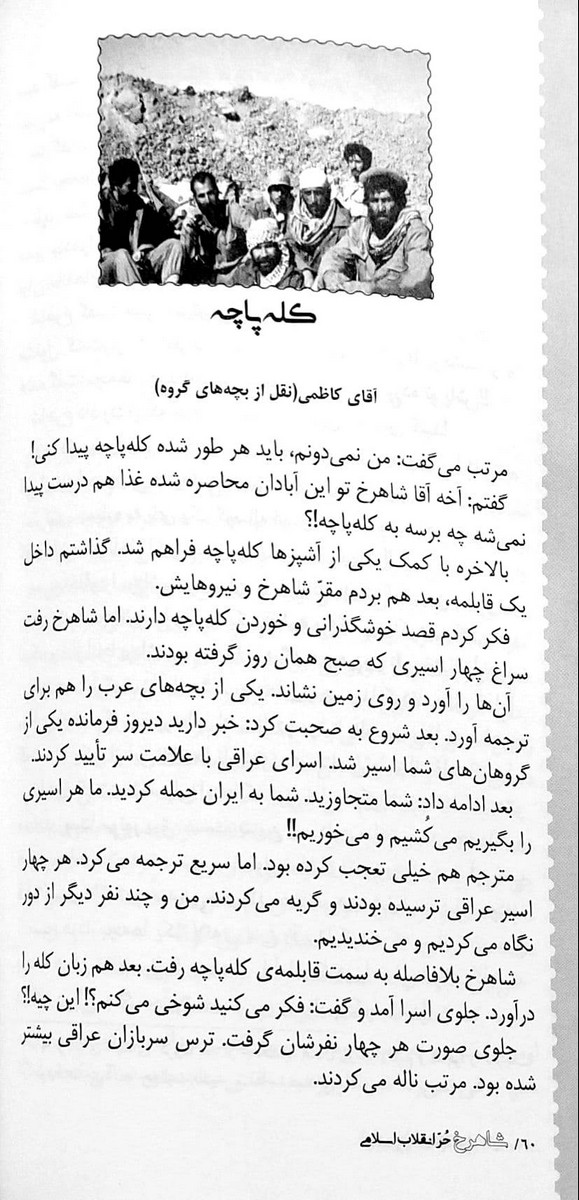 کله‌پاچه
آقای کاظمی(نقل از بچه‌های گروه)
مرتب می‌گفت: من نمی‌دونم، باید هر طور شده کله‌پاچه پیدا کنی!
گفتم: آخه آقا شاهرخ تو این آبادان محاصره شده غذا هم درست پیدا
نمی‌شه چه برسه به کله‌پاچه!؟
بالاخره با کمک یکی از آشپزها کله‌پاچه فراهم شد. گذاشتم داخل
یک قابلمه، بعد هم بردم مقرّ شاهرخ و نیروهایش.
فکر کردم قصد خوشگذرانی و خوردن کله‌پاچه دارند. اما شاهرخ رفت
سراغ چهار اسیری که صبح همان روز گرفته بودند.
آن‌ها را آورد و روی زمین نشاند. یکی از بچه‌های عرب را هم برای
ترجمه آورد. بعد شروع به صحبت کرد: خبر دارید دیروز فرمانده یکی از
گروهان‌های شما اسیر شد. اسرای عراقی با علامت سر تأیید کردند.
بعد ادامه داد: شما متجاوزید. شما به ایران حمله کردید. ما هر اسیری
را بگیریم می‌کُشیم و می‌خوریم!!
مترجم هم خیلی تعجب کرده بود. اما سریع ترجمه می‌کرد. هر چهار
اسیر عراقی ترسیده بودند و گریه می‌کردند. من و چند نفر دیگر از دور
نگاه می‌کردیم و می‌خندیدیم.
شاهرخ بلافاصله به سمت قابلمه‌ی کله‌پاچه رفت. بعد هم زبان کله را
درآورد. جلوی اسرا آمد و گفت: فکر می‌کنید شوخی می‌کنم؟! این چیه!؟
جلوی صورت هر چهار نفرشان گرفت. ترس سربازان عراقی بیشتر
شده بود. مرتب ناله می‌کردند.
۶۰/ شاهرخ حُرّ انقلاب اسلامی